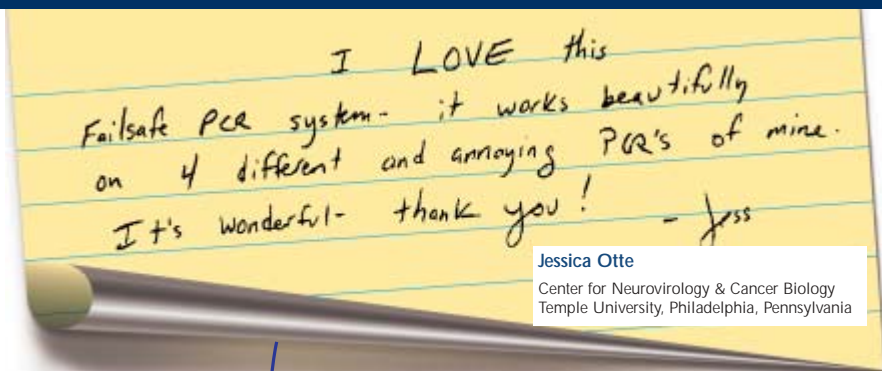 I LOVE this
Failsafe PCR system- it works beautifully
on 4 different and annoying PCR's of mine.
It's wonderful- thank you! - Jess
Jessica Otte
Center for Neurovirology & Cancer Biology
Temple University, Philadelphia, Pennsylvania